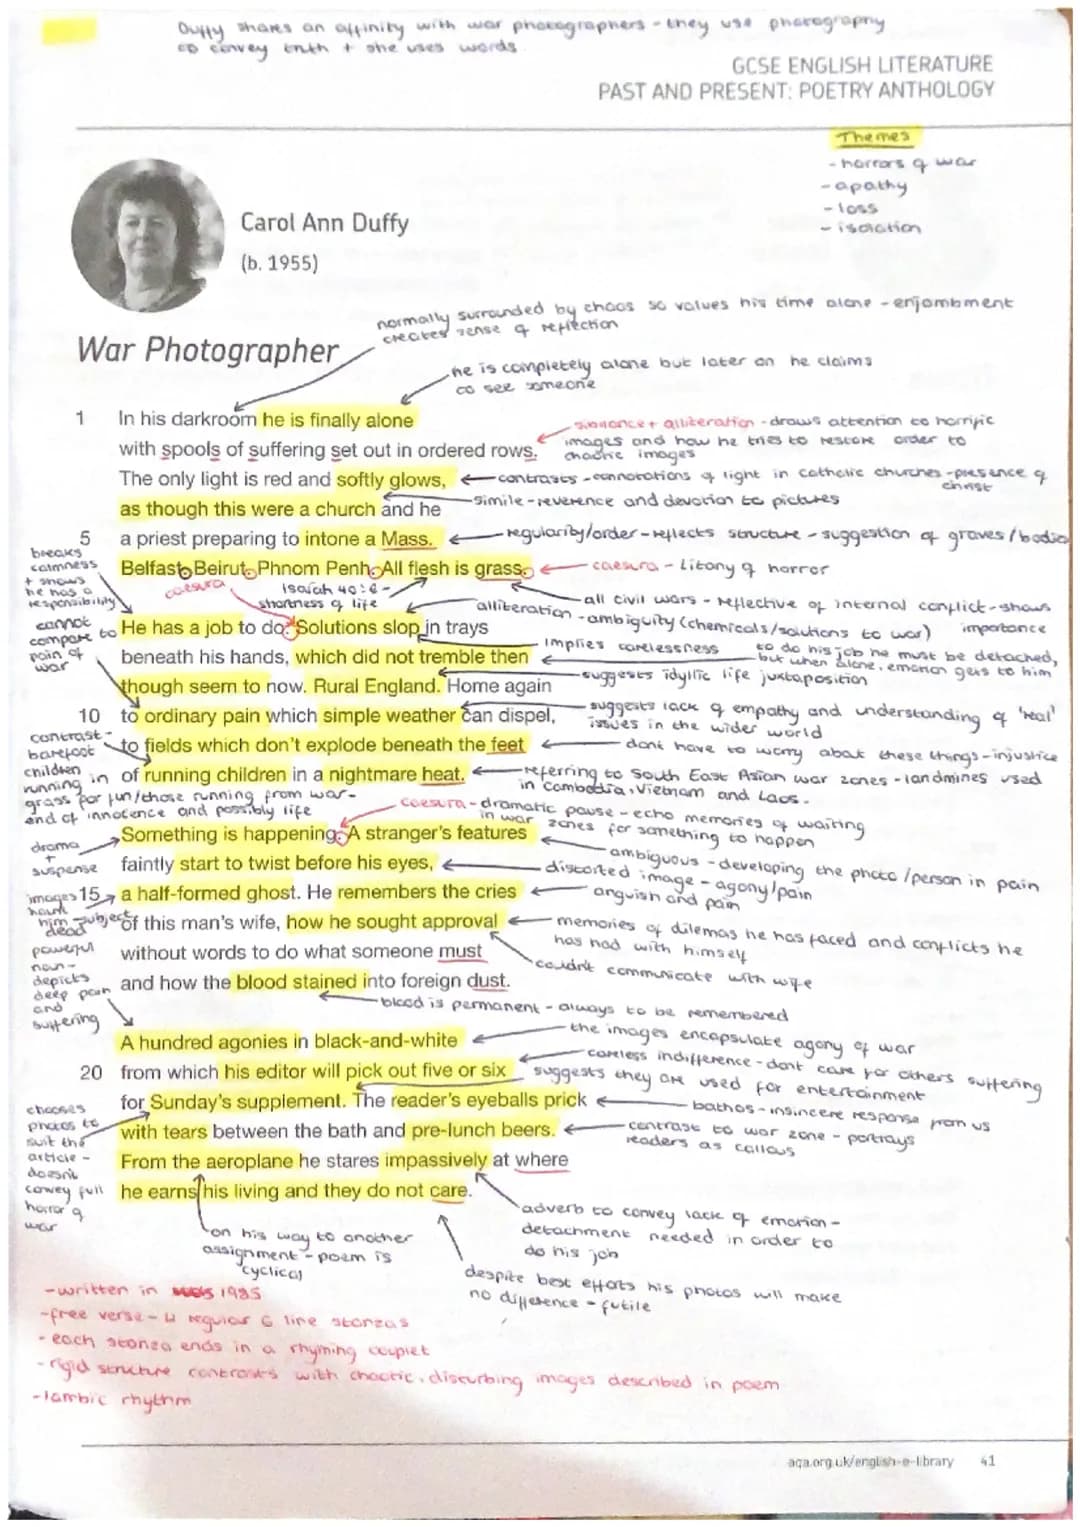 Duffy shares an affinity with war photographers - they use photography
to convey truth + she uses words
GCSE ENGLISH LITERATURE
PAST AND PRESENT: POETRY ANTHOLOGY
Themes
- horrors of war
- apathy
- loss
- isolation
Carol Ann Duffy
(b. 1955)
normally surrounded by chaos so values his time alone - enjambment
creates sense of reflection
War Photographer
he is completely alone but later on he claims
to see someone
1 In his darkroom he is finally alone
sibilance + alliteration - draws attention to horrific
images and how he tries to restore order to
chaotic images
with spools of suffering set out in ordered rows.
The only light is red and softly glows,
contrasts - connotations of light in catholic churches - presence of
christ
as though this were a church and he
simile - reverence and devotion to pictures
5 a priest preparing to intone a Mass.
regularity/order - reflects structure - suggestion of graves/bodies
Belfast. Beirut. Phnom Penh. All flesh is grass.
caesura - litany of horror
breaks
calmness
+ shows
he has a
responsibility
caesura
Isaiah 40:6 -
shortness of life
all civil wars - reflective of internal conflict - shows
importance
alliteration - ambiguity (chemicals/solutions to war)
He has a job to do. Solutions slop in trays
cannot
compare to
pain of
war
implies carelessness
beneath his hands, which did not tremble then
to do his job he must be detached,
but when alone, emotion gets to him
though seem to now. Rural England. Home again
suggests idyllic life juxtaposition
10 to ordinary pain which simple weather can dispel,
suggests lack of empathy and understanding of 'real'
issues in the wider world
to fields which don't explode beneath the feet
dont have to worry about these things - injustice
of running children in a nightmare heat.
referring to South East Asian war zones - landmines used
in Cambodia, Vietnam and Laos.
contrast -
barefoot
children
running in
grass for fun/those running from war -
end of innocence and possibly life
caesura - dramatic pause - echo memories of waiting
in war zones for something to happen
Something is happening. A stranger's features
drama
+
suspense
ambiguous - developing the photo/person in pain
faintly start to twist before his eyes,
distorted image - agony/pain
15 a half-formed ghost. He remembers the cries
anguish and pain
images
haunt
him - subject
dead
of this man's wife, how he sought approval
memories of dilemas he has faced and conflicts he
has had with himself
without words to do what someone must
couldn't communicate with wife
and how the blood stained into foreign dust.
blood is permanent - always to be remembered
powerful
noun -
depicts
deep pain
and
suffering
A hundred agonies in black-and-white
the images encapsulate agony of war
20 from which his editor will pick out five or six
careless indifference - dont care for others suffering
suggests they are used for entertainment
for Sunday's supplement. The reader's eyeballs prick
bathos - insincere response from us
with tears between the bath and pre-lunch beers.
contrast to war zone - portrays
readers as callous
chooses
photos to
suit the
article -
doesn't
convey full
horror of
war
From the aeroplane he stares impassively at where
he earns his living and they do not care.
on his way to another
assignment - poem is
cyclical
adverb to convey lack of emotion -
detachment needed in order to
do his job
despite best efforts his photos will make
no difference - futile
- written in 1985
- free verse - 4 regular 6 line stanzas
- each stanza ends in a rhyming couplet
- rigid structure contrasts with chaotic, disturbing images described in poem
- Iambic rhythm
aqa.org.uk/english-e-library 41